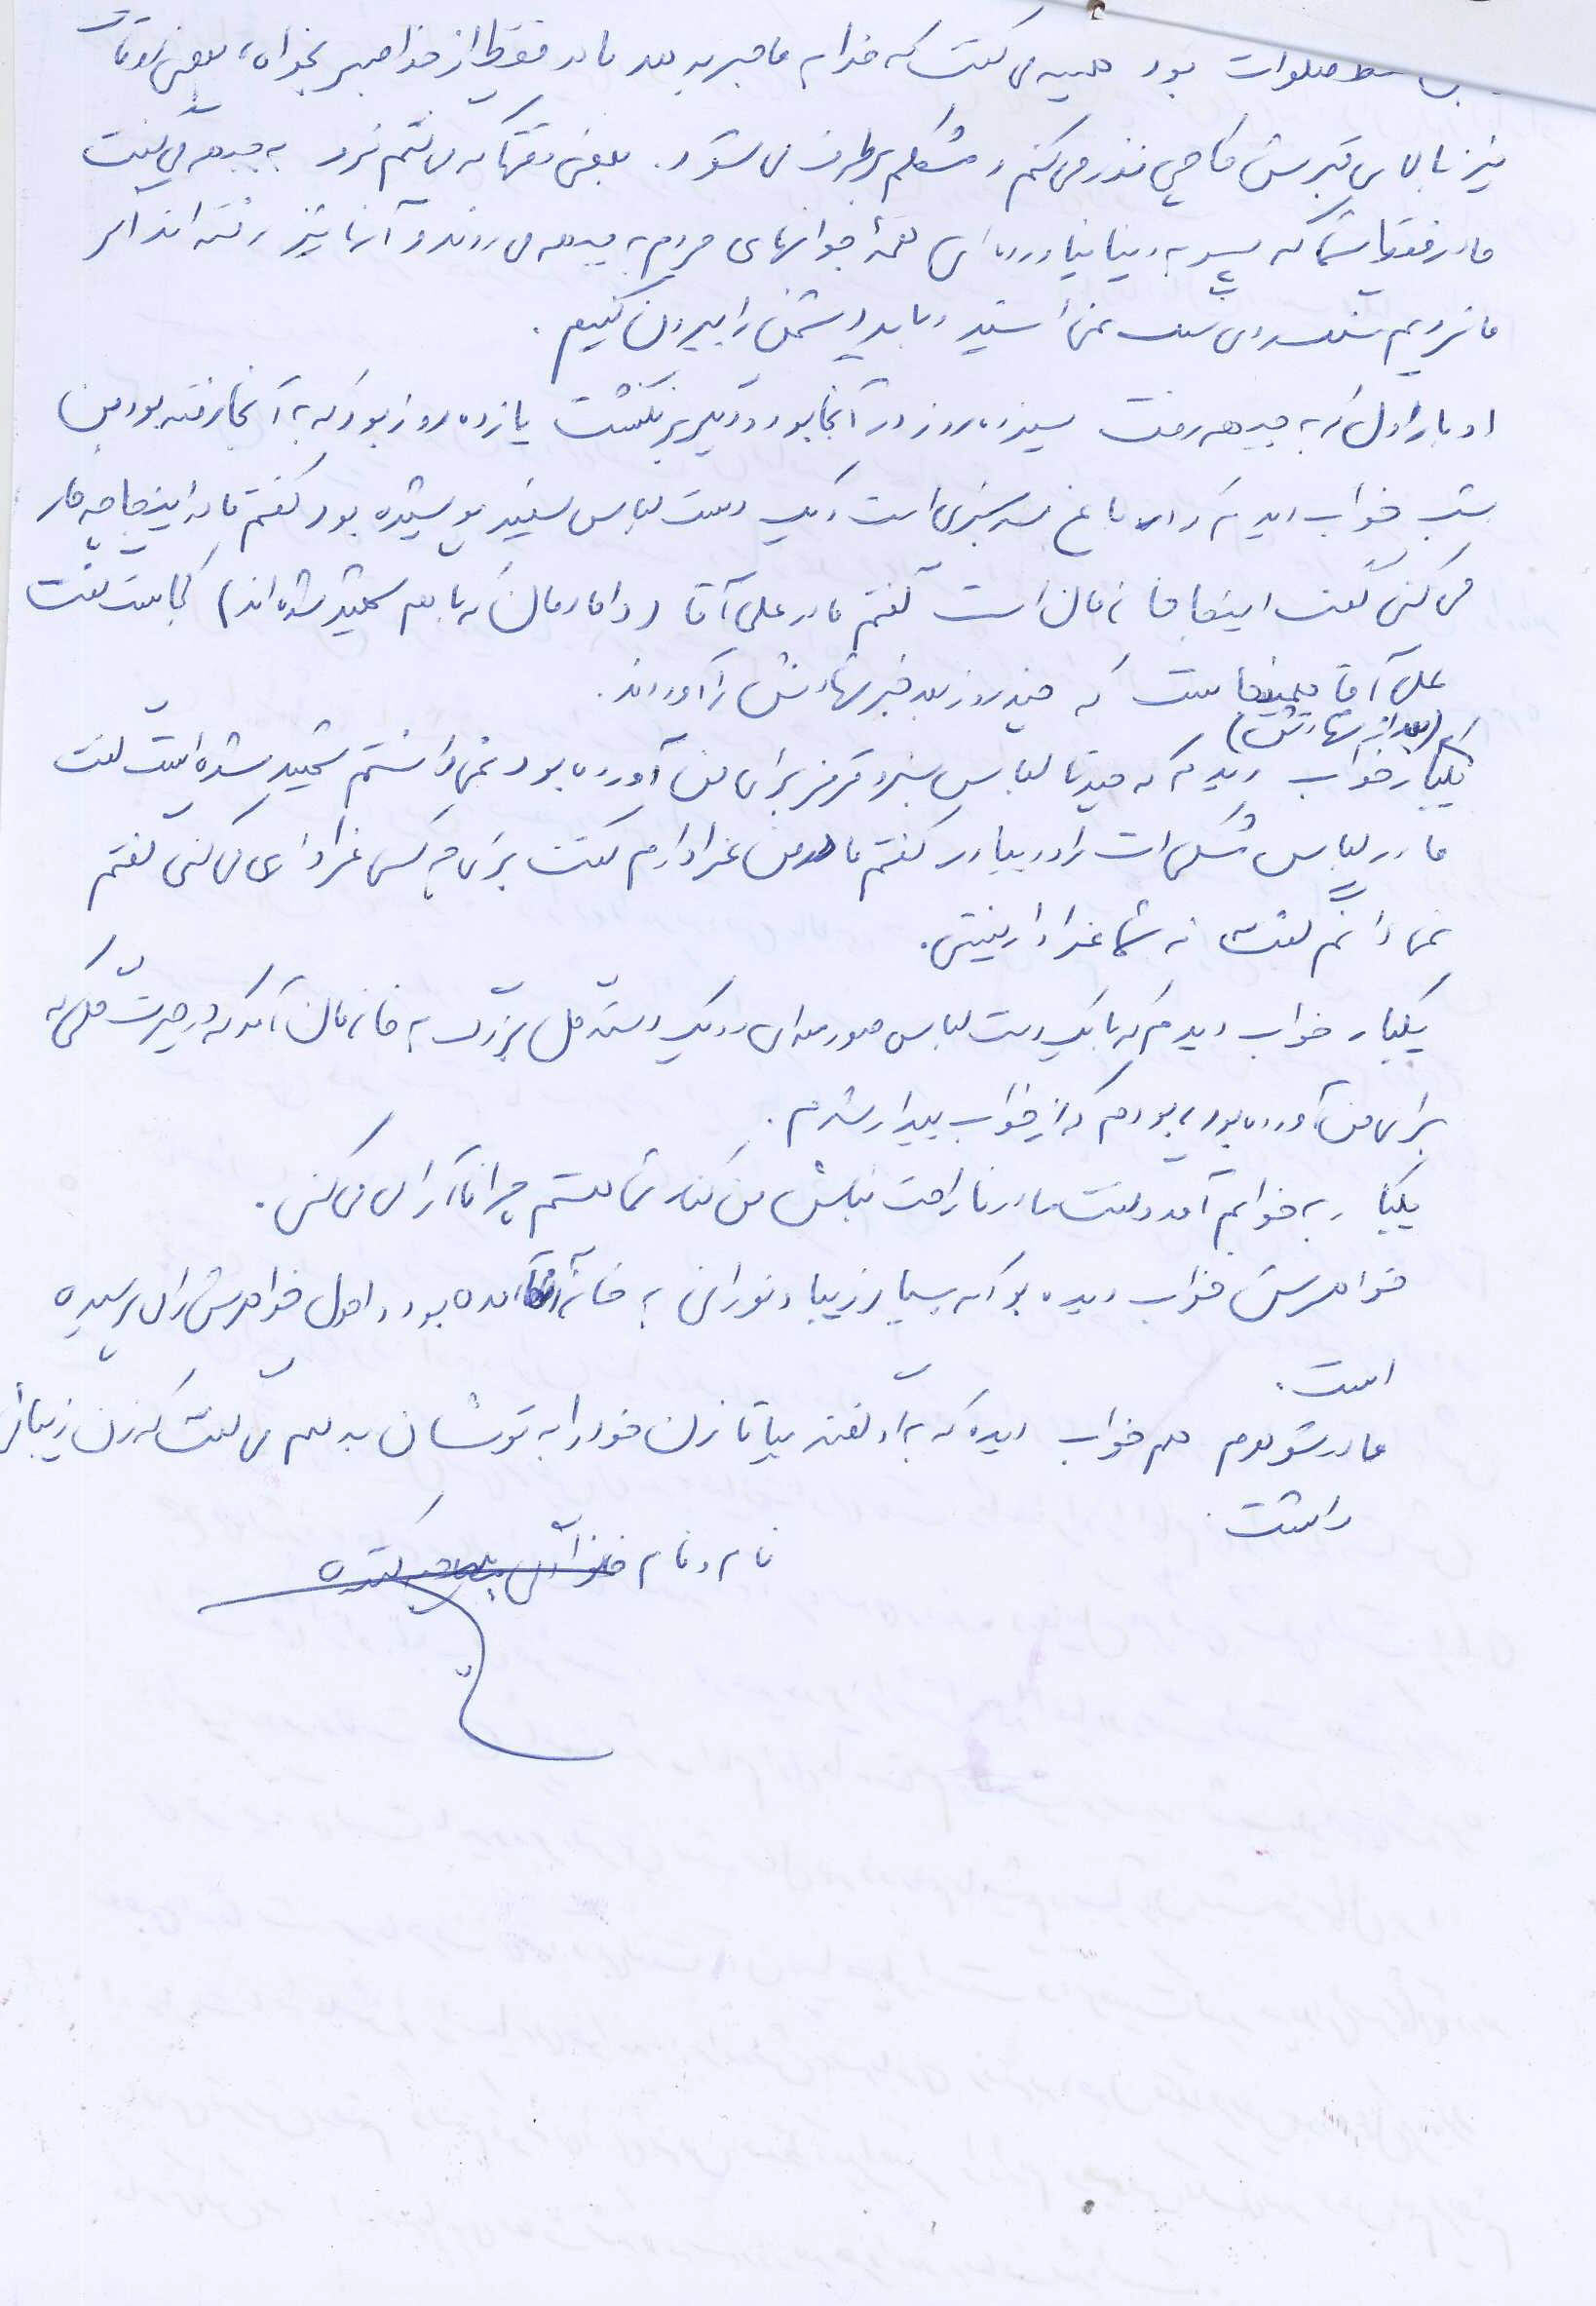 صلوات بود همیشه می گفت که خدا به ما صبر بدهد مادر فقط از خدا صبر بخواه، بعضی اوقات
نیز بالای قبرش کاچی نذر می کنم و مشکلم برطرف می شود. بعضی وقتها که می گفتم نرو به جبهه می گفت
مادر فقط شما که پسر به دنیا نیاورده ای همۀ جوانهای مردم به جبهه می روند و آنها نیز رفته اند اگر
ما نرویم باید دشمن را بیرون کنیم.
او بار اول که به جبهه رفت سیزده روز در آنجا بود و دیگر برنگشت یازده روز بود که به آنجا رفته بود من
شب خواب دیدم که در باغ سرسبزی است و یک دست لباس سفید پوشیده بود گفتم مادر اینجا چه کار
می کنی گفت اینجا خانه مان است گفتم مادر علی آقا (دامادمان که با هم شهید شده اند) کجاست گفت
علی آقا همینجاست که چند روز بعد خبر شهادتش را آوردند.
(بعد از شهادتش)
یکبار خواب دیدم که چند تا لباس سبز و قرمز برای من آورده بود نمی دانستم شهید شده است گفت
مادر لباس مشکی ات را در بیاور گفتم مادر من عزادارم گفت برای چه کسی عزاداری می کنی گفتم
نمی دانم گفت نه شما عزادار نیستی.
یکبار خواب دیدم که با یک دست لباس سورمه ای و یک دسته گل بزرگ به خانه مان آمد که در حیرت گلی که
برای من آورده بود بودم که از خواب بیدار شدم.
یکبار به خوابم آمد و گفت مادر ناراحت نباش من کنار شما هستم چرا ناآرامی می کنی.
خواهرش خواب دیده بود که بسیار زیبا و نورانی به خانه آمده بود و احوال خواهرش را پرسیده
است.
مادر شوهرم هم خواب دیده که به او گفته بیا تا زن خود را به تو نشان بدهم می گفت که زن زیبائی
داشت.
نام و نام